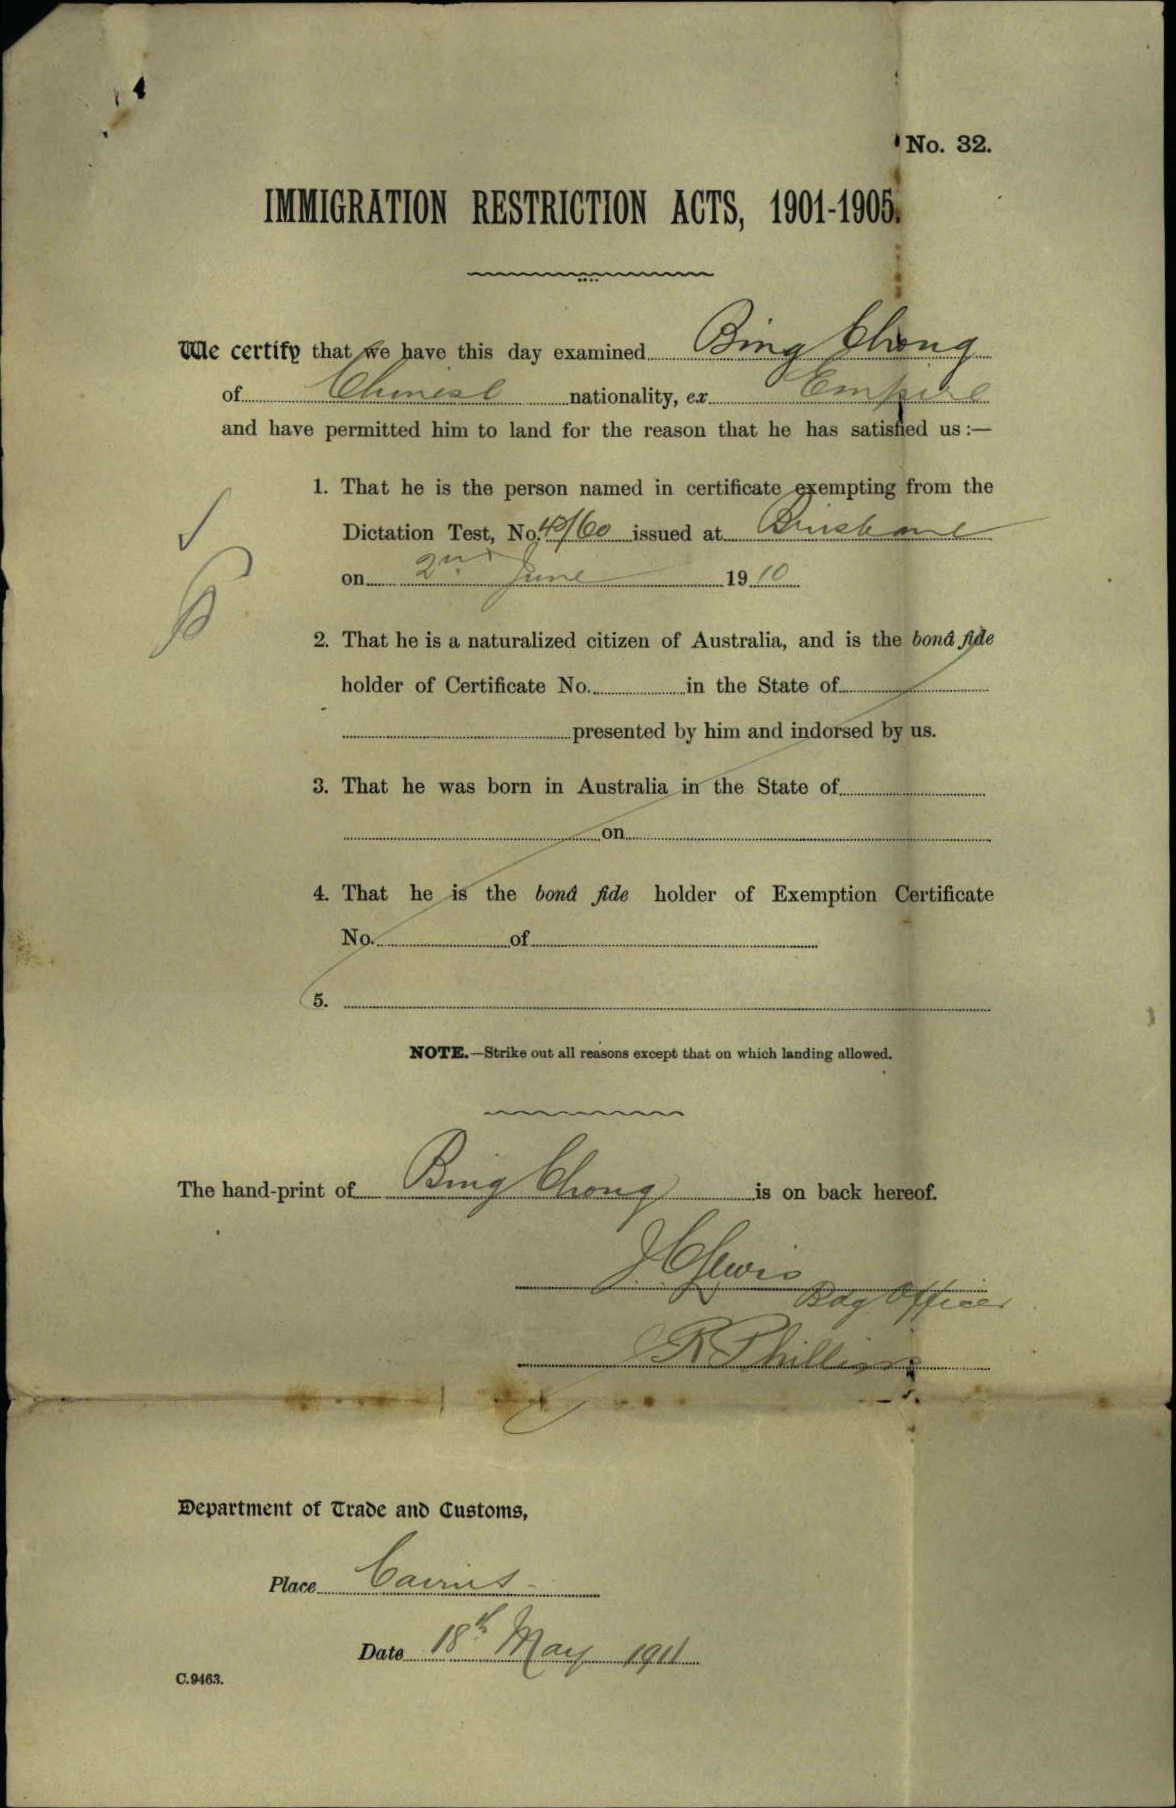 No. 32.
IMMIGRATION RESTRICTION ACTS, 1901-1905.
We certify that we have this day examined Bing Chong
of Chinese nationality, ex Empire
and have permitted him to land for the reason that he has satisfied us :—
1. That he is the person named in certificate exempting from the
Dictation Test, No. 10/60 issued at Brisbane
on 2nd June 1910
2. That he is a naturalized citizen of Australia, and is the bonâ fide
holder of Certificate No. in the State of
presented by him and indorsed by us.
3. That he was born in Australia in the State of
on
4. That he is the bonâ fide holder of Exemption Certificate
No. of
5.
NOTE.—Strike out all reasons except that on which landing allowed.
The hand-print of Bing Chong is on back hereof.
J C Lewis
Bdg Officer
R Phillips
Department of Trade and Customs,
Place Cairns
Date 18th May 1911
C.9463.